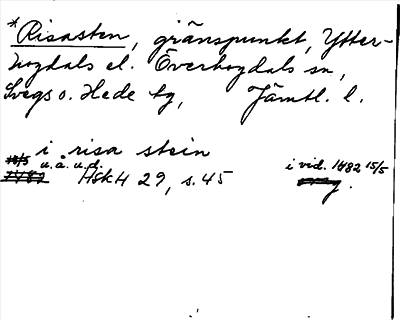 *Risasten, gränspunkt, Ytter-
hogdals el. Överhogdals sn,
Svegs o. Hede tg, Jämtl. l.
i risa stein
u.å. u.d. i vid. 1482 15/5
HskH 29, s. 45